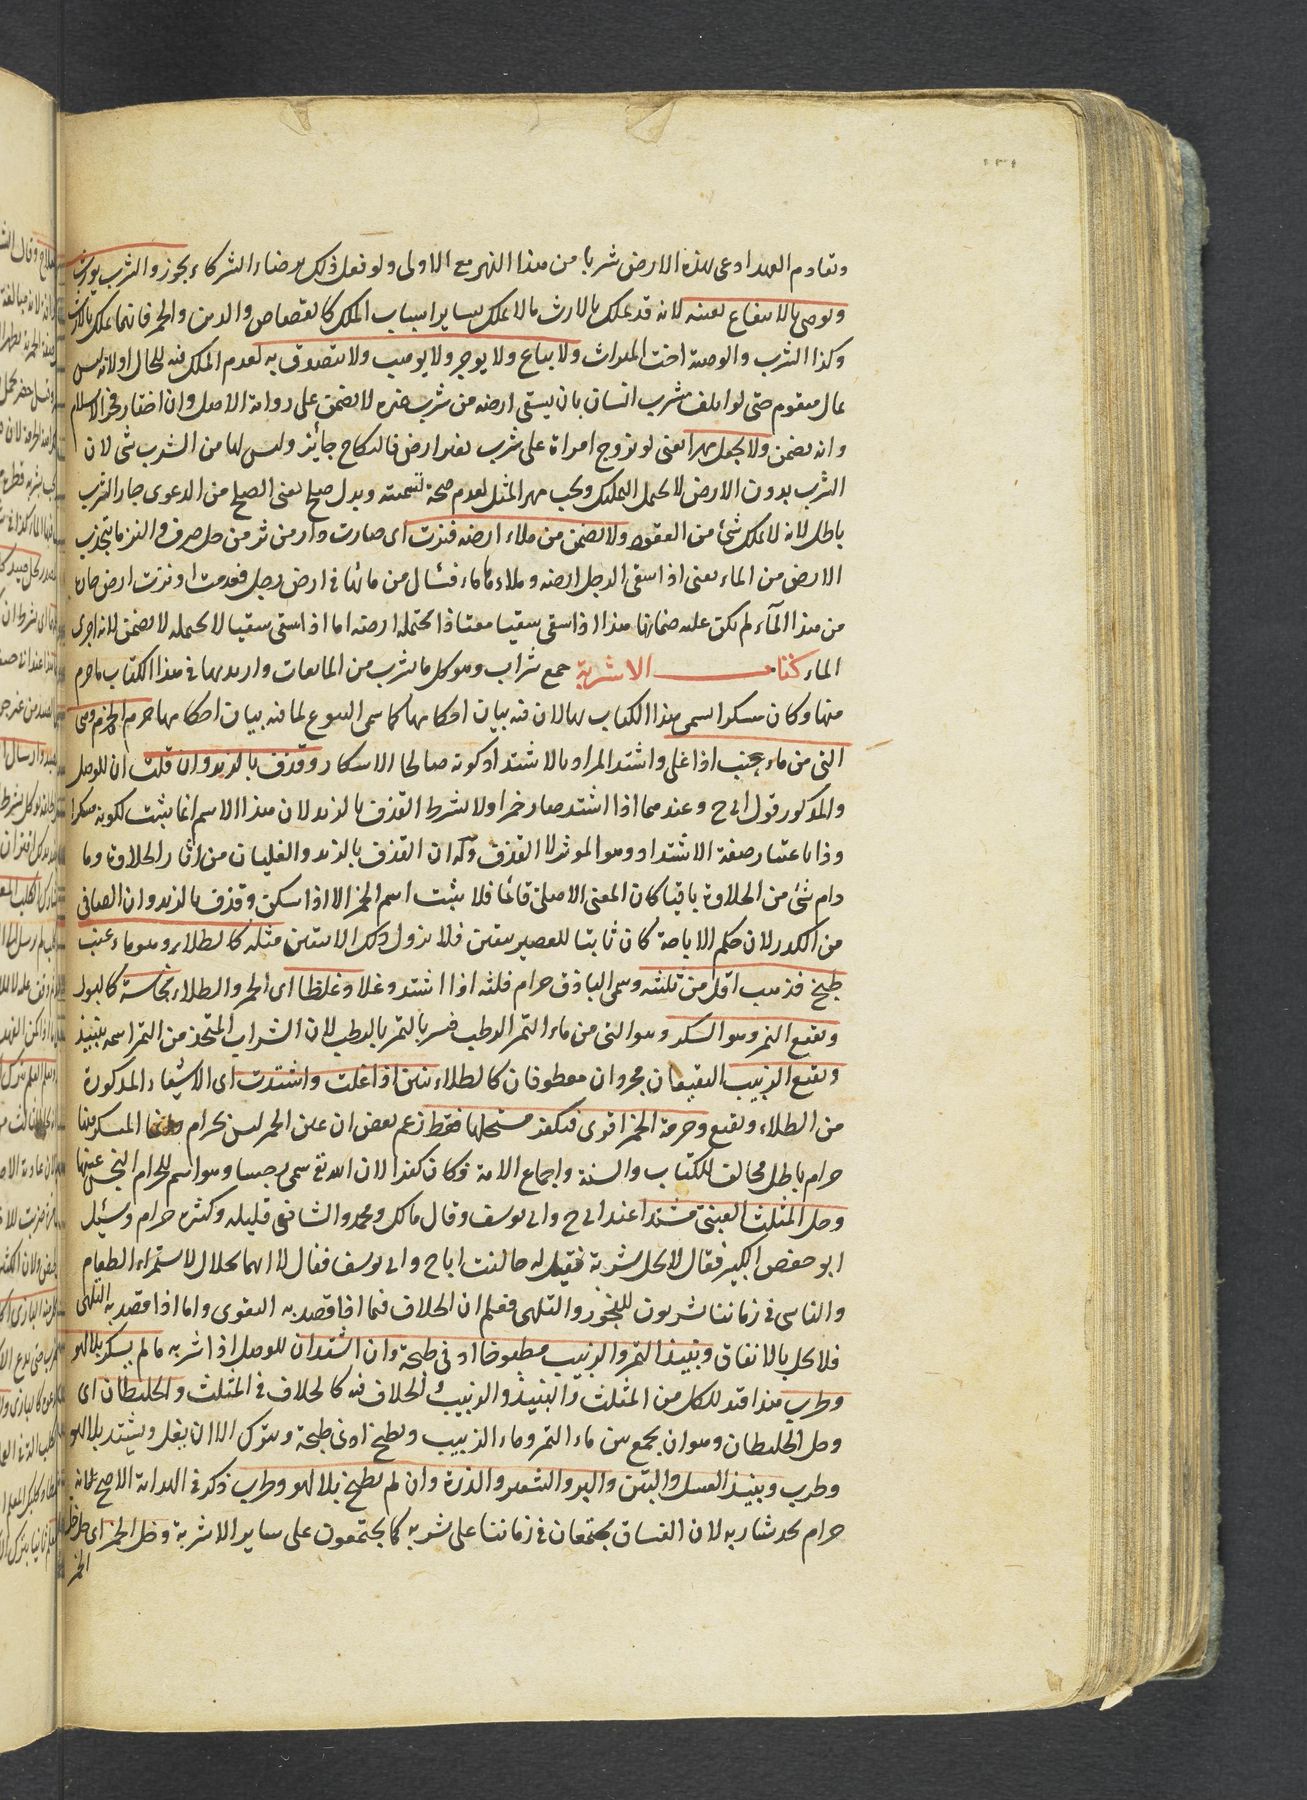 وتقادم العهد ادعى لهذه الارض شربا من هذا النهر مع الاولى ولو فعل ذلك برضاء الشركاء يجوز والشرب يورث
ويوصى بالانتفاع بعينه لانه قد يملك بالارث ما لا يملك بسائر اسباب الملك كالقصاص والدين والخمر فانها يملك بالارث
وكذا الشرب والوصية اخت الميراث ولا يباع ولا يوجر ولا يوهب ولا يتصدق به لعدم الملك فيه للحال او لانه ليس
بمال متقوم حتى لو اتلف شرب انسان بان يسقى ارضه من شرب غيره لا يضمن على رواية الاصل وان اختار فخر الاسلام
وانه يضمن ولا يجعل مهرا يعنى لو تزوج امراة على شرب بغير ارض فالنكاح جائز وليس لها من الشرب شئ لان
الشرب بدون الارض لا يحتمل التمليك ويجب مهر المثل لعدم صحة تسميته وبدل صلح يعنى الصلح من الدعوى جاز الشرب
باطل لانه لا يملك شئ من العقود ولا يضمن من ملاء ارضه فنزت اى صارت دار من نز من حل صرف والنز ما يتجذب
الارض من الماء يعنى اذا سقى الرجل ارضه وملاءها ماء فسال من مائها فى ارض رجل فغرقت او نزت ارض جاره
من هذا المآء لم يكن عليه ضمانها هذا اذا سقى سقيا معتادا تحتمله ارضه اما اذا سقى سقيا لا تحتمله لا يضمن لانه اجرى
الماء كتاب الاشربة جمع شراب وهو كل ما يشرب من المائعات واريد بها فى هذا الكتاب ما حرم
منها وكان مسكرا سمى هذا الكتاب بها لان فيه بيان احكامها كما سمى البيوع لما فيه بيان احكامها حرم الخمر وهى
النى من ماء عنب اذا غلى واشتد المراد بالاشتداد كونه صالحا للاسكار وقذف بالزبد وان قلت ان للوصل
والمذكور قول ابى ح وعندهما اذا اشتد صار خمرا ولا يشرط القذف بالزبد لان هذا الاسم انما يثبت لكونه مسكرا
وذا باعتبار صفة الاشتداد وهو الموثر لا القذف وله ان القذف بالزبد والغليان من اثار الحلاوة وما
دام شئ من الحلاوة باقيا كان المعنى الاصلى قائما فلا يثبت اسم الخمر الا اذا سكن وقذف بالزبد وان الصافى
من الكدر لان حكم الاباحة كان ثابتا للعصير بيقين فلا يزول ذلك الا بيقين مثله كالطلاء وهو ماء عنب
طبخ فذهب اقل من ثلثيه وسمى الباذق حرام فلثه اذا اشتد وغلا وغلظا اى الخمر والطلاء نجاسة كالبول
ونقيع التمر وهو السكر وهو النى من ماء التمر الرطب فسر بالتمر بالرطب لان الشراب المتخذ من التمر اسمه نبيذ
ونقيع الزبيب النقيعان مجروران معطوفان كالطلاء نيين اذا غلت واشتدت اى الاشياء المذكورة
من الطلاء ونقيع وحرمة الخمر اقوى فيكفر مستحلها فقط زعم بعض ان عين الخمر ليس بحرام المسكر منها
حرام باطل مخالف للكتاب والسنة واجماع الامة فكان كفرا لان الله تع سمى رجسا وهو اسم للحرام النجس عينها
وحل المثلث العنبى مشتدا عند ابى ح وابى يوسف وقال مالك ومحمد والشافعى قليله وكثيره حرام وسئل
ابو حفص الكبير فقال لا يحل شربه فقيل له خالفت ابا ح وابى يوسف فقال لا انهما يحلان لاستمراء الطعام
والناس فى زماننا يشربون للفجور والتلهى فعلم ان الخلاف فيما اذا قصد به التقوى واما اذا قصد به التلهى
فلا يحل بالاتفاق ونبيذ التمر والزبيب مطبوخا ادنى طبخة وان اشتد ان للوصل اذا شربه ما لم يسكر بلا لهو
وطرب هذا قيد للكل من المثلث والنبيذ والزبيب والخلاف فيه كالخلاف فى المثلث والخليطان اى
وحل الخليطان وهو ان يجمع بين ماء التمر وماء الزبيب ويطبخ ادنى طبخة ويترك الى ان يغلى ويشتد بلا لهو
وطرب ونبيذ العسل والتين والبر والشعير والذرة وان لم يطبخ بلا لهو وطرب ذكر فى الهداية الاصح انه
حرام يحد شاربه لان الفساق يجتمعان فى زماننا على شربه كما يجتمعون على سائر الاشربة وخل الخمر اى حل خل
الخمر